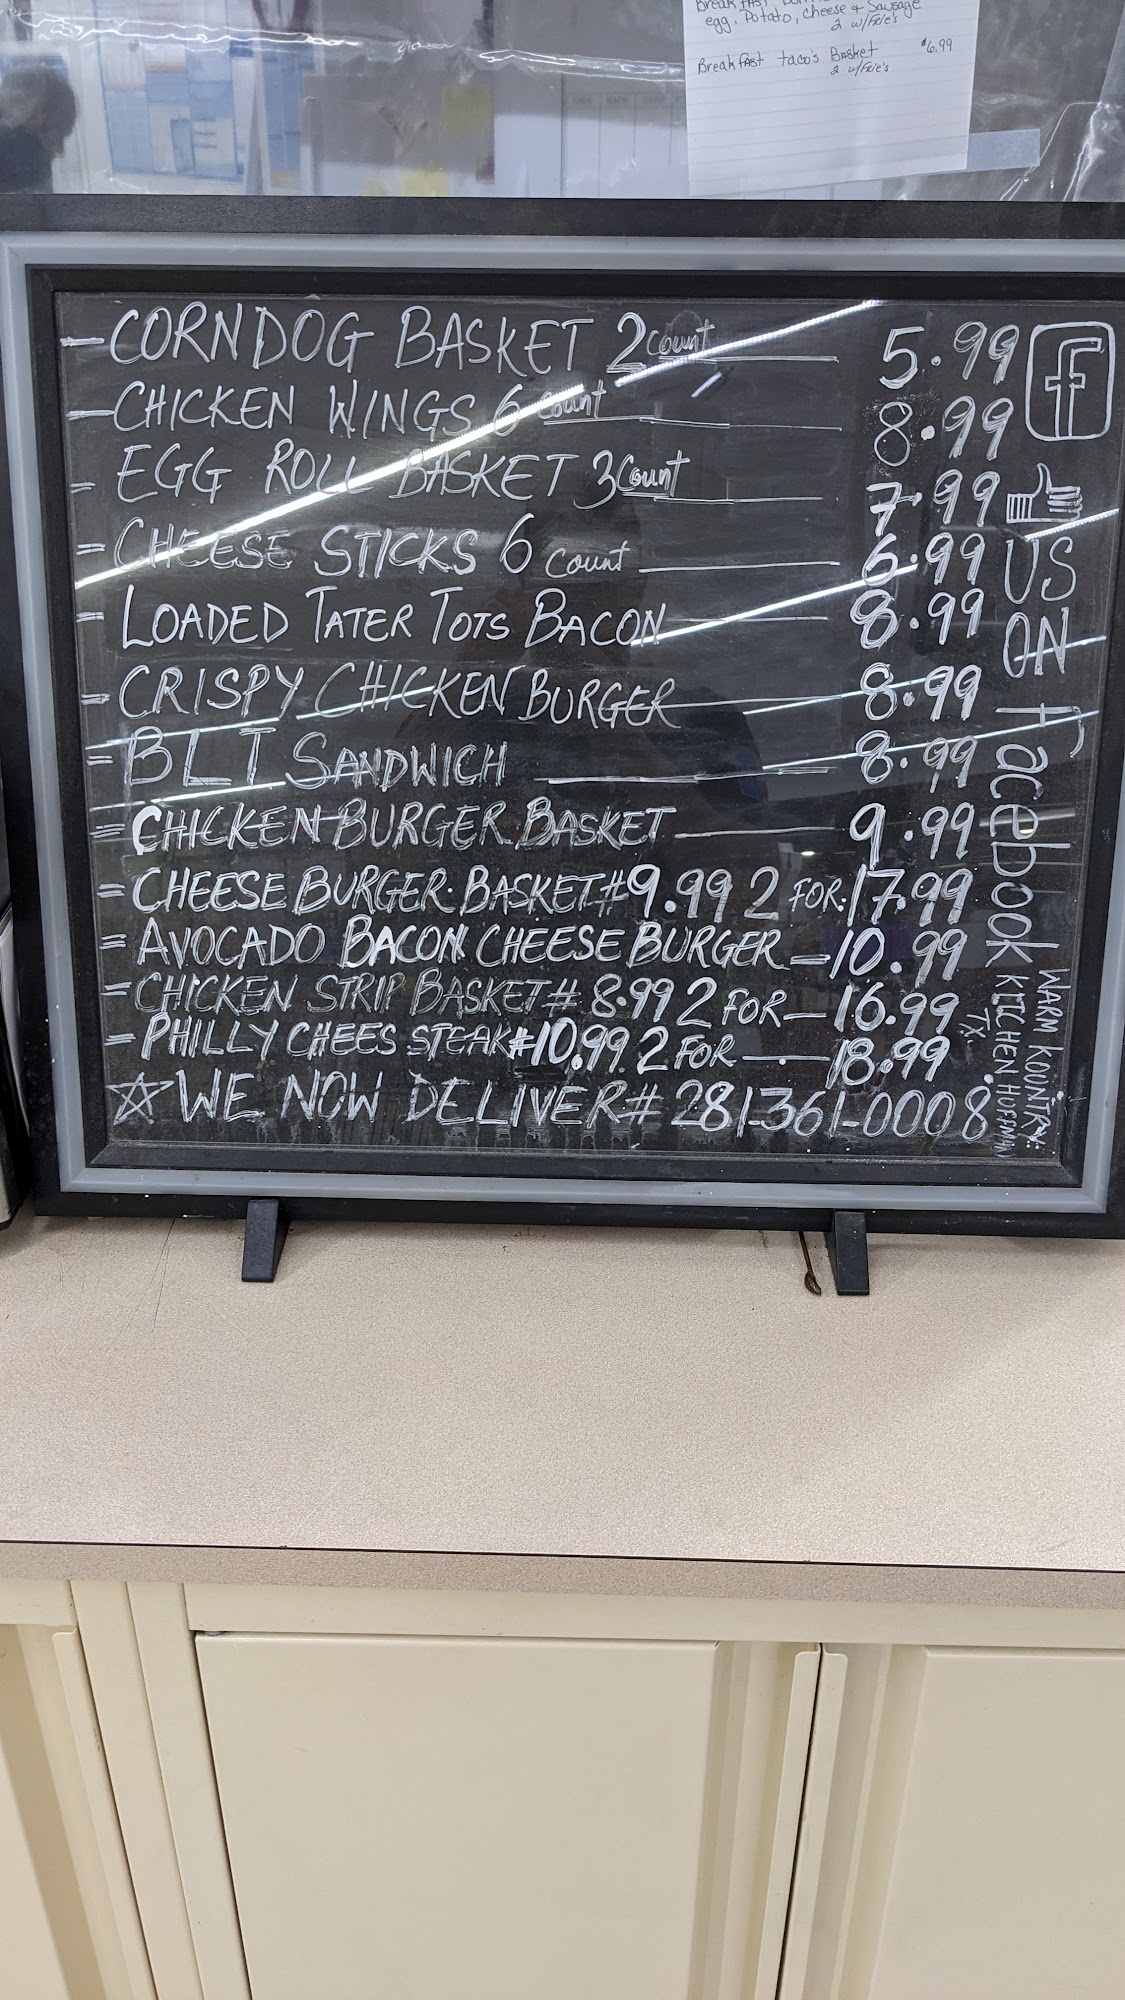 egg, Potato, Cheese & Sausage
2 w/Frie's
Breakfast taco's Basket $6.99
2 w/Frie's
- CORNDOG BASKET 2 count 5.99
- CHICKEN WINGS 6 count 8.99
- EGG ROLL BASKET 3 Count 7.99
= CHEESE STICKS 6 count 6.99
= LOADED TATER TOTS BACON 8.99
= CRISPY CHICKEN BURGER 8.99
= BLT SANDWICH 8.99
= CHICKEN BURGER BASKET 9.99
= CHEESE BURGER BASKET # 9.99 2 FOR 17.99
= AVOCADO BACON CHEESE BURGER - 10.99
= CHICKEN STRIP BASKET # 8.99 2 FOR - 16.99
- PHILLY CHEES STEAK # 10.99 2 FOR - 18.99
☆ WE NOW DELIVER # 281-361-0008
f
US
ON
Facebook
WARM KOUNTRY
KITCHEN HUFFMAN
TX.